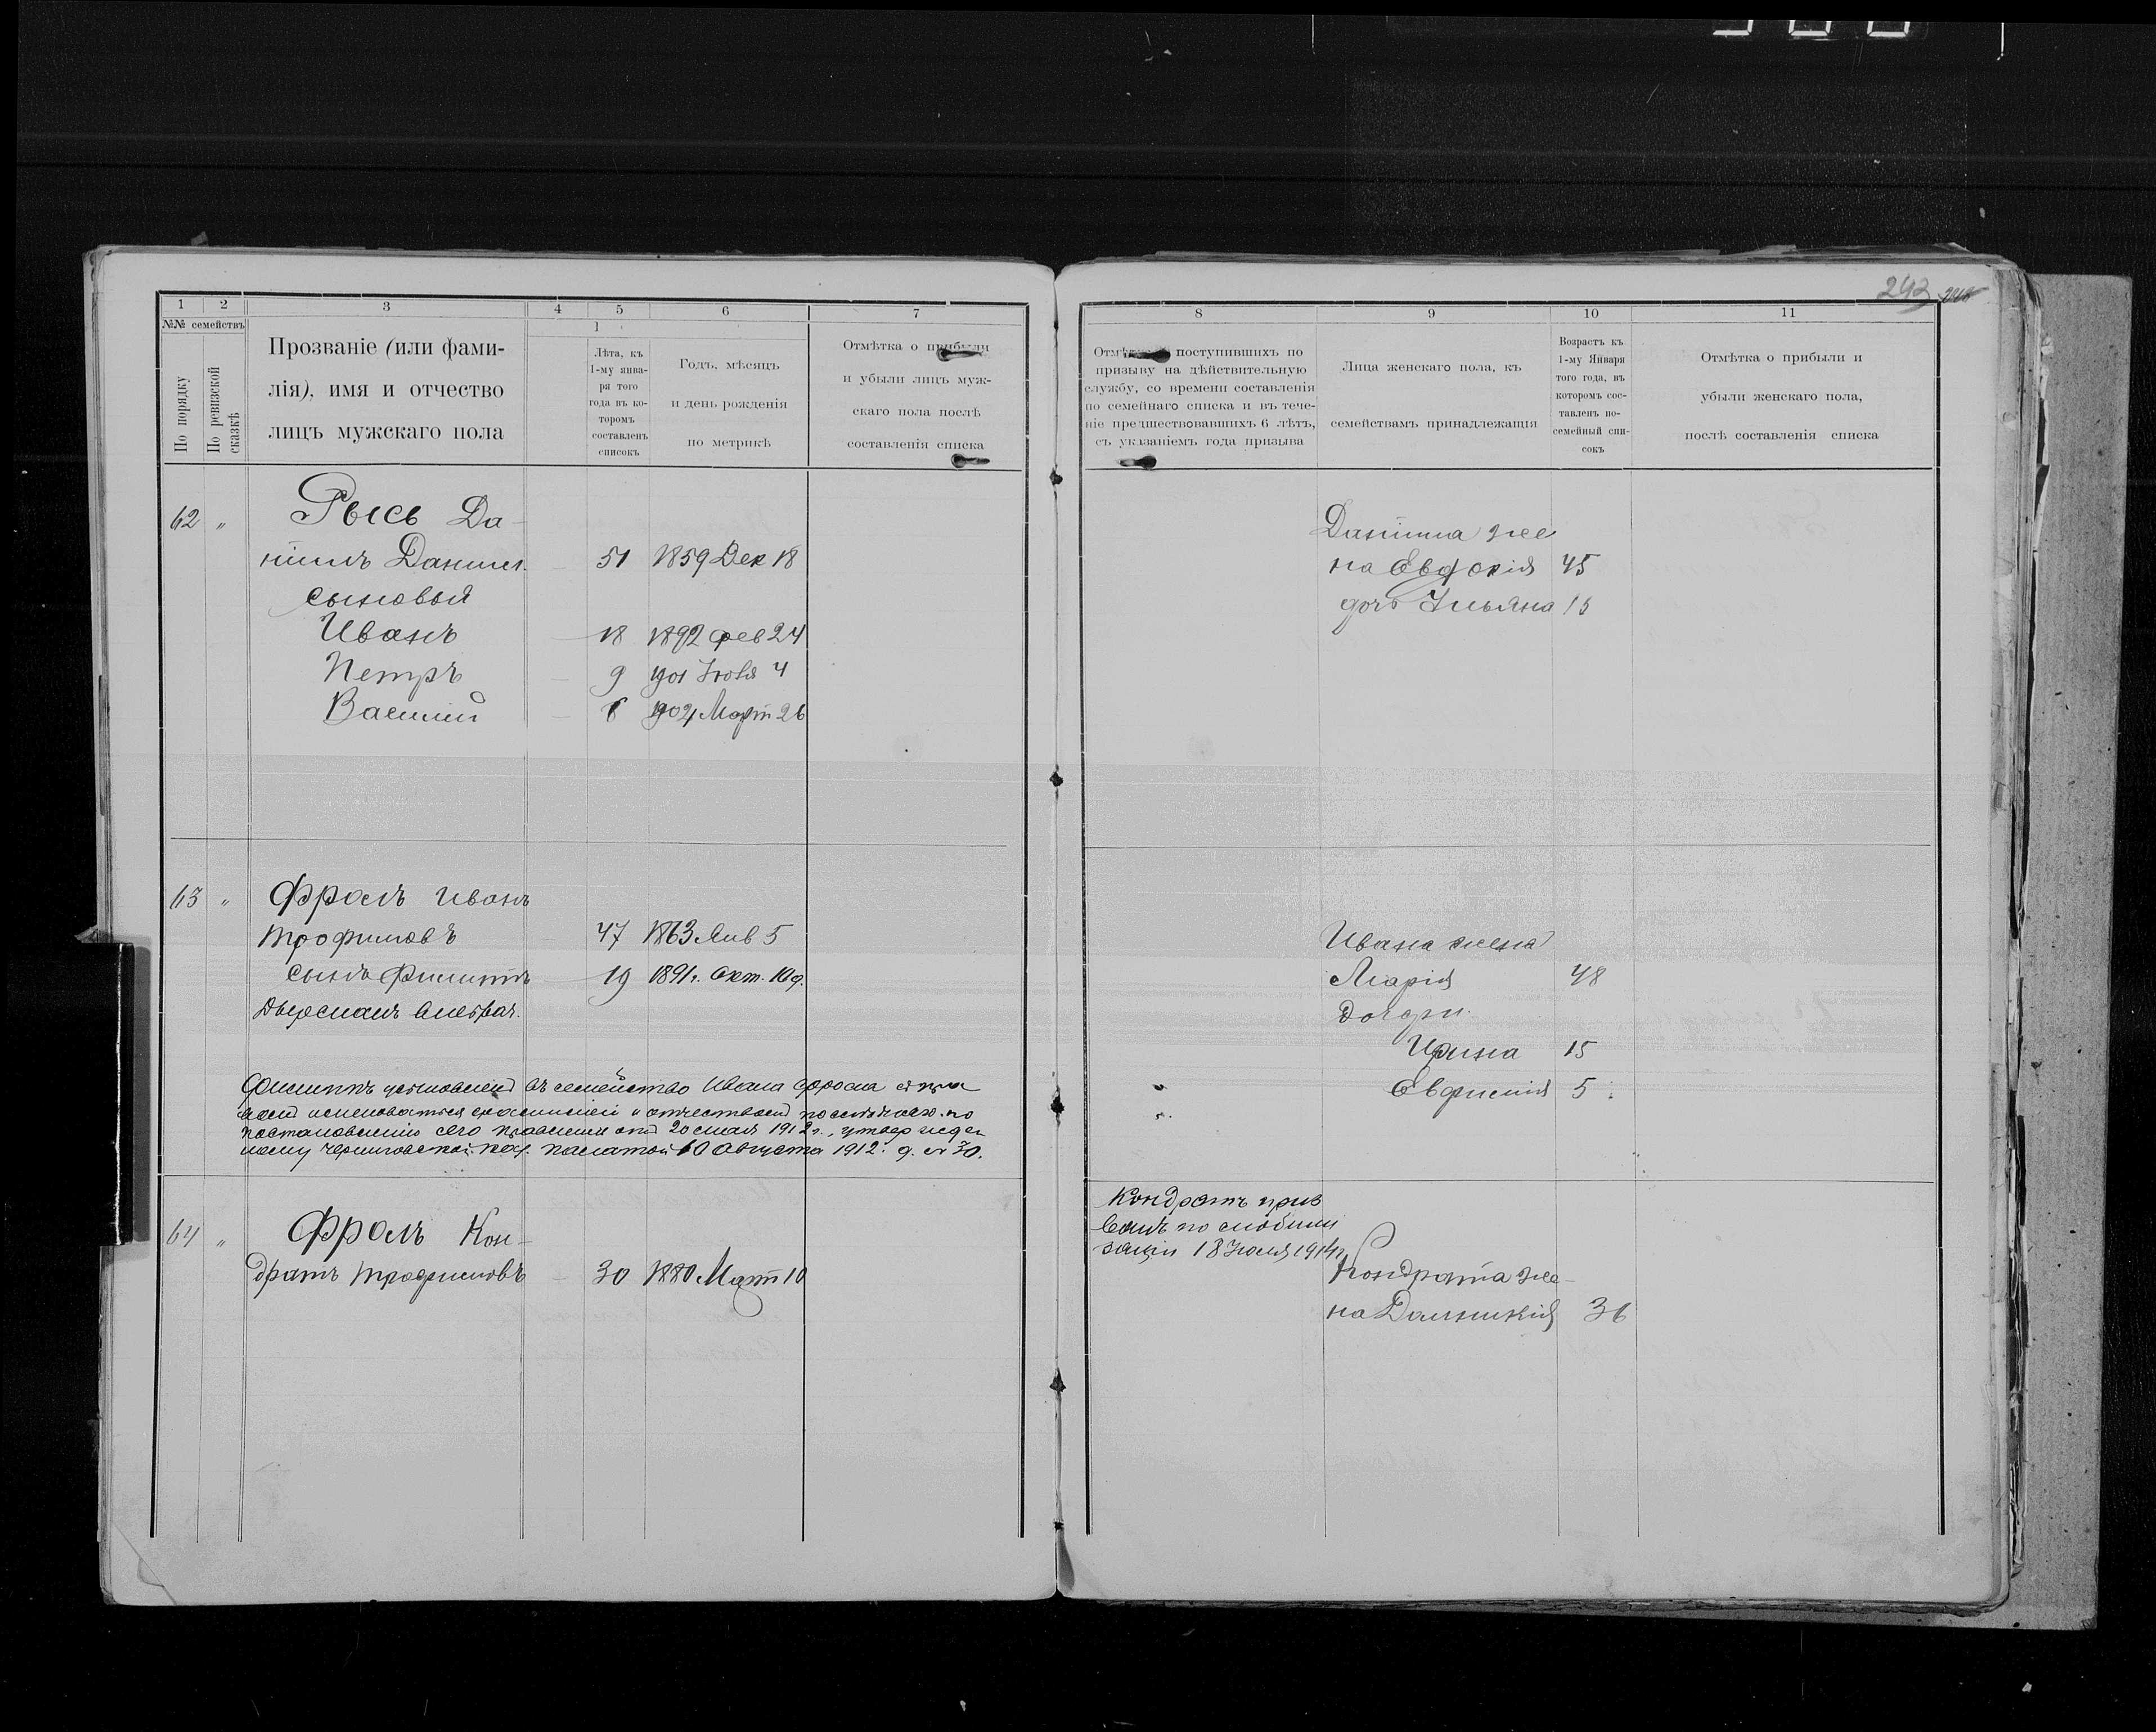 243
1 2 3 4 5 6 7
№№ семействъ
По порядку
По ревизской сказкѣ
Прозваніе (или фами-
лія), имя и отчество
лицъ мужскаго пола
Лѣта, къ
1-му янва-
ря того
года въ ко-
торомъ
составленъ
списокъ
Годъ, мѣсяцъ
и день рожденія
по метрикѣ
Отмѣтка о прибыли
и убыли лицъ муж-
скаго пола послѣ
составленія списка
62 " Рысь Да-
ніилъ Данил. 51 1859 Дек 18
сыновья
Иванъ 18 1892 фев 24
Петръ 9 1901 Іюня 4
Василий 1904 Март 26
63 " Фролъ Иванъ
Трофимовъ 47 1863 Янв 5
сынъ Филиппъ 19 1891г. Окт. 10 д.
Филиппъ усыновленъ въ семейство Ивана Фрола
именоваться фамиліей и отчествомъ по
постановленію сего правленія отъ 20 мая 1912 г., утвержден
ному Черниговской каз. палатой 10 Августа 1912. д. № 30.
64 " Фролъ Кон-
дратъ Трофимовъ 30 1880 Март 10
8 9 10 11
поступившихъ по
призыву на дѣйствительную
службу, со времени составленія
по семейнаго списка и въ тече-
ніе предшествовавшихъ 6 лѣтъ,
съ указаніемъ года призыва
Лица женскаго пола, къ
семействамъ принадлежащія
Возрастъ къ
1-му Января
того года, въ
которомъ сос-
тавленъ по-
семейный спи-
сокъ
Отмѣтка о прибыли и
убыли женскаго пола,
послѣ составленія списка
Даніила же
на Евдокія 45
дочь Ульяна 15
Ивана жена
Марія 48
дочери
Ирина 15
Евфимія 5
Кондратъ приз
ванъ по мобили
заціи 18 Іюля 1914 г.
Кондрата же-
на Домникія 36